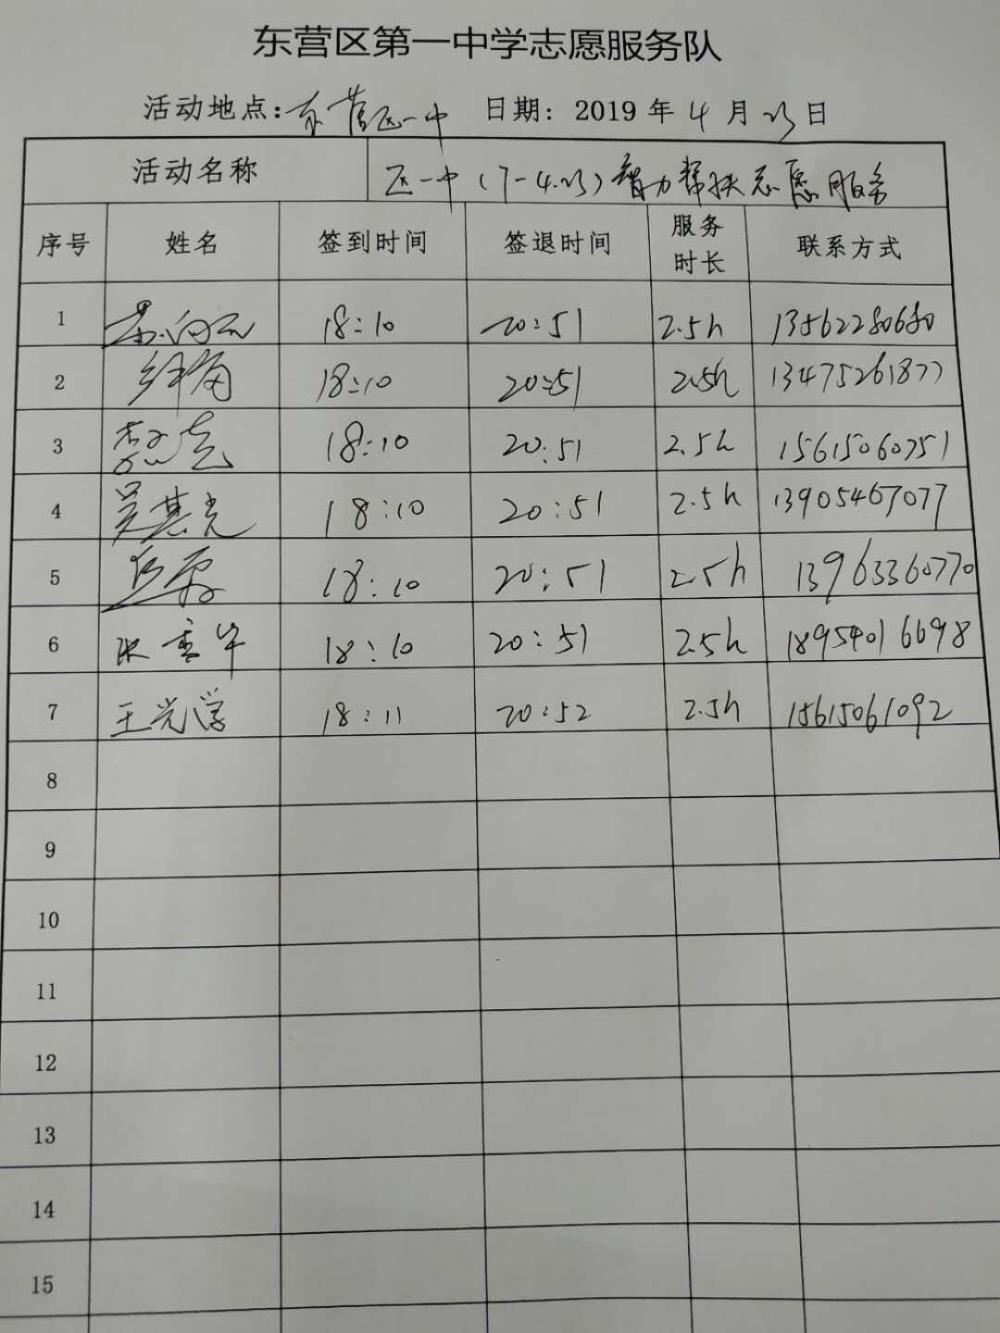 东营区第一中学志愿服务队
活动地点:东营区一中 日期: 2019 年 4 月 23 日
活动名称 区一中(7-4.23)智力帮扶志愿服务
序号 姓名 签到时间 签退时间 服务时长 联系方式
1 18:10 20:51 2.5h 13562280680
2 18:10 20:51 2.5h 13475261877
3 18:10 20:51 2.5h 15615060751
4 吴其光 18:10 20:51 2.5h 13905467077
5 18:10 20:51 2.5h 13963360770
6 张春华 18:10 20:51 2.5h 18954016698
7 王光学 18:11 20:52 2.5h 15615061092
8
9
10
11
12
13
14
15